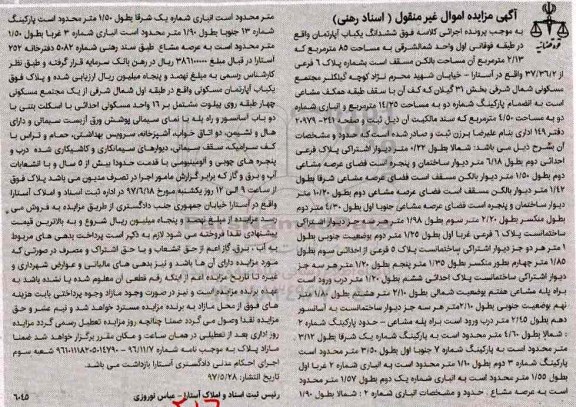 آگهی مزایده اموال غیر منقول ( اسناد رهنی)
به موجب پرونده اجرائی کلاسه فوق ششدانگ یکباب آپارتمان واقع
در طبقه فوقانی اول واحد شمالشرقی به مساحت ۸۵ مترمربع که
مترمربع آن مساحت بالکن مسقف است بشماره پلاک ۶ فرعی
از ۳۷/۳۶/۲ واقع در آستارا - خیابان شهید محرم نژاد کوچه گیلکلر مجتمع
مسکونی شمال شرقی بخش ۳۱ گیلان که کف آن با سقف طبقه همکف مشاعی
است به انضمام پارکینگ شماره دو به مساحت ۱۴/۲۵ مترمربع و انباری شماره
دو به مساحت ۴/۵۰ مترمربع که سند مالکیت آن ذیل ثبت و صفحه ۲۴۱- ۲۰۹۷۹
دفتر ۱۴۹ اداری بنام علیرضا برزن ثبت و صادر شده است که حدود و مشخصات
آن بشرح ذیل می باشد: شمالا بطول
احداثی دوم بطول ۶/۱۸ دیوار ساختمان و پنجره است فضای عرصه مشاعی
دوم بطول ۱/۵۰ دیوار بالکن مسقف است فضای عرصه مشاعی شرقا بطول
۱/۴۲ دیوار بالکن مسقف است فضای عرصه مشاعی دوم بطول ۱۰/۲۰ متر
دیوار ساختمان و پنجره است فضای عرصه مشاعی جنوبا اول بطول ۴/۳۰ متر دوم
بطول منکسر بطول ۲/۲۰ متر سوم بطول ۱/۹۸ متر هر سه جزء دیوار اشتراکی
ساختمانست پلاک ۶ فرعی غربا اول بطول ۱/۲۵ متر دوم بوضعیت جنوبی بطول
۱ متر هر دو جزء دیوار اشتراکی ساختمانست پلاک ۵ فرعی از احداثی سوم بطول
۱/۸۵ متر چهارم بطور منکسر بطول ۱/۳۵ متر پنجم بطول ۱/۲۰ متر هر سه جزء
دیوار اشتراکی ساختمانست پلاک احداثی ششم بطول ۱/۲۰ متر درب ورود است
براه پله مشاعی هفتم بوضعیت شمالی بطول ۲/۱۰ متر هشتم بطول ۱/۸۰ متر
نهم بوضعیت جنوبی بطول ۲/۱۰ متر هر سه جزء دیوار ساختمانست به آسانسور
دهم بطول ۲/۴۵ متر درب ورود است براه پله مشاعی - حدود پارکینگ شماره ۲
: شمالا بطول ۴/۶۰ متر محدود است به پارکینگ شماره یک شرقا بطول ۳/۱۲
متر محدود است به پارکینگ شماره ۷ جنوبا اول بطول ۳/۵۰ متر محدود است
پارکینگ شماره ۳ دوم بطول ۱/۱۰ متر محدود است به انباری ۱ غربا اول بطول
۱/۵۵ متر محدود است به انباری شماره یک دوم بطول ۱/۵۷ متر محدود است
به عرصه مشاع . حدود و مشخصات انباری شماره ۲ : شمالا بطول ۱/۹۰
متر محدود است انباری شماره یک شرقا بطول ۱/۵۰ متر محدود است پارکینگ
شماره ۱۳ جنوبا بطول ۱/۹۰ متر محدود است انباری شماره ۳ غربا بطول ۱/۵۰
متر محدود است به عرصه مشاع طبق سند رهنی شماره ۵۰۸۲ دفترخانه ۲۵۲
آستارا در قبال مبلغ ریال در رهن بانک سرمایه قرار گرفته و طبق نظر
کارشناس رسمی به مبلغ نهصد و پنجاه میلیون ریال ارزیابی شده و پلاک فوق
یکباب آپارتمان مسکونی واقع در طبقه اول شمال شرقی از یک مجتمع مسکونی
چهار طبقه روی پیلوت مشتمل بر ۱۶ واحد مسکونی احداثی با اسکلت بتنی با
دو باب آسانسور و راه پله با نمای سیمانی پوشش ورق آزبست سیمانی و دارای
هال و نشیمن، دو اتاق خواب، آشپزخانه، سرویس بهداشتی، حمام و تراس با
کف سرامیک، سقف سیمانی، دیوارهای سیمانکاری و کاشیکاری شده درب و
پنجره های چوبی و آلومینیومی با قدمت حدودا بیش از ۵ سال و با انشعابات
آب و برق و گاز که برابر گزارش مامور اجرا در تصرف مدیون می باشد پلاک فوق
از ساعت ۹ الی ۱۲ روز یکشنبه مورخ ۹۷/۶/۱۸ در اداره ثبت اسناد و املاک آستارا
واقع در آستارا خیابان جمهوری جنب دادگستری از طریق مزایده به فروش می
رسد مزایده از مبلغ نهصد و پنجاه میلیون ریال شروع و به بالاترین قیمت
پیشنهادی نقدا فروخته می شود لازم به ذکر است پرداخت بدهی های مربوط
به آب ، برق، گاز اعم از حق انشعاب و یا حق اشتراک و مصرف در صورتی که
مورد مزایده دارای آن ها باشد و نیز بدهی های مالیاتی و عوارض شهرداری و
غیره تا تاریخ مزایده اعم از اینکه رقم قطعی آن معلوم شده یا نشده باشد به
عهده برنده مزایده است و نیز در صورت وجود مازاد وجوه پرداختی بابت هزینه
های فوق از محل مازاد به برنده مزایده مسترد خواهد شد و نیم عشر و حق
مزایده نقدا وصول می گردد ضمنا چنانچه روز مزایده تعطیل رسمی گردد مزایده
روز اداری بعد از تعطیلی در همان ساعت و مکان مقرر برگزار خواهد شد ضمنا
مازاد پلاک به موجب نامه شماره ۹۶/۱۱/۷ - شعبه سوم
اجرای احکام مدنی دادگستری آستارا بازداشت می باشد.
تاریخ انتشار: ۹۷/۵/۲۸
رئیس ثبت اسناد و املاک آستارا - عباس نوروزی
۶۰۴۵